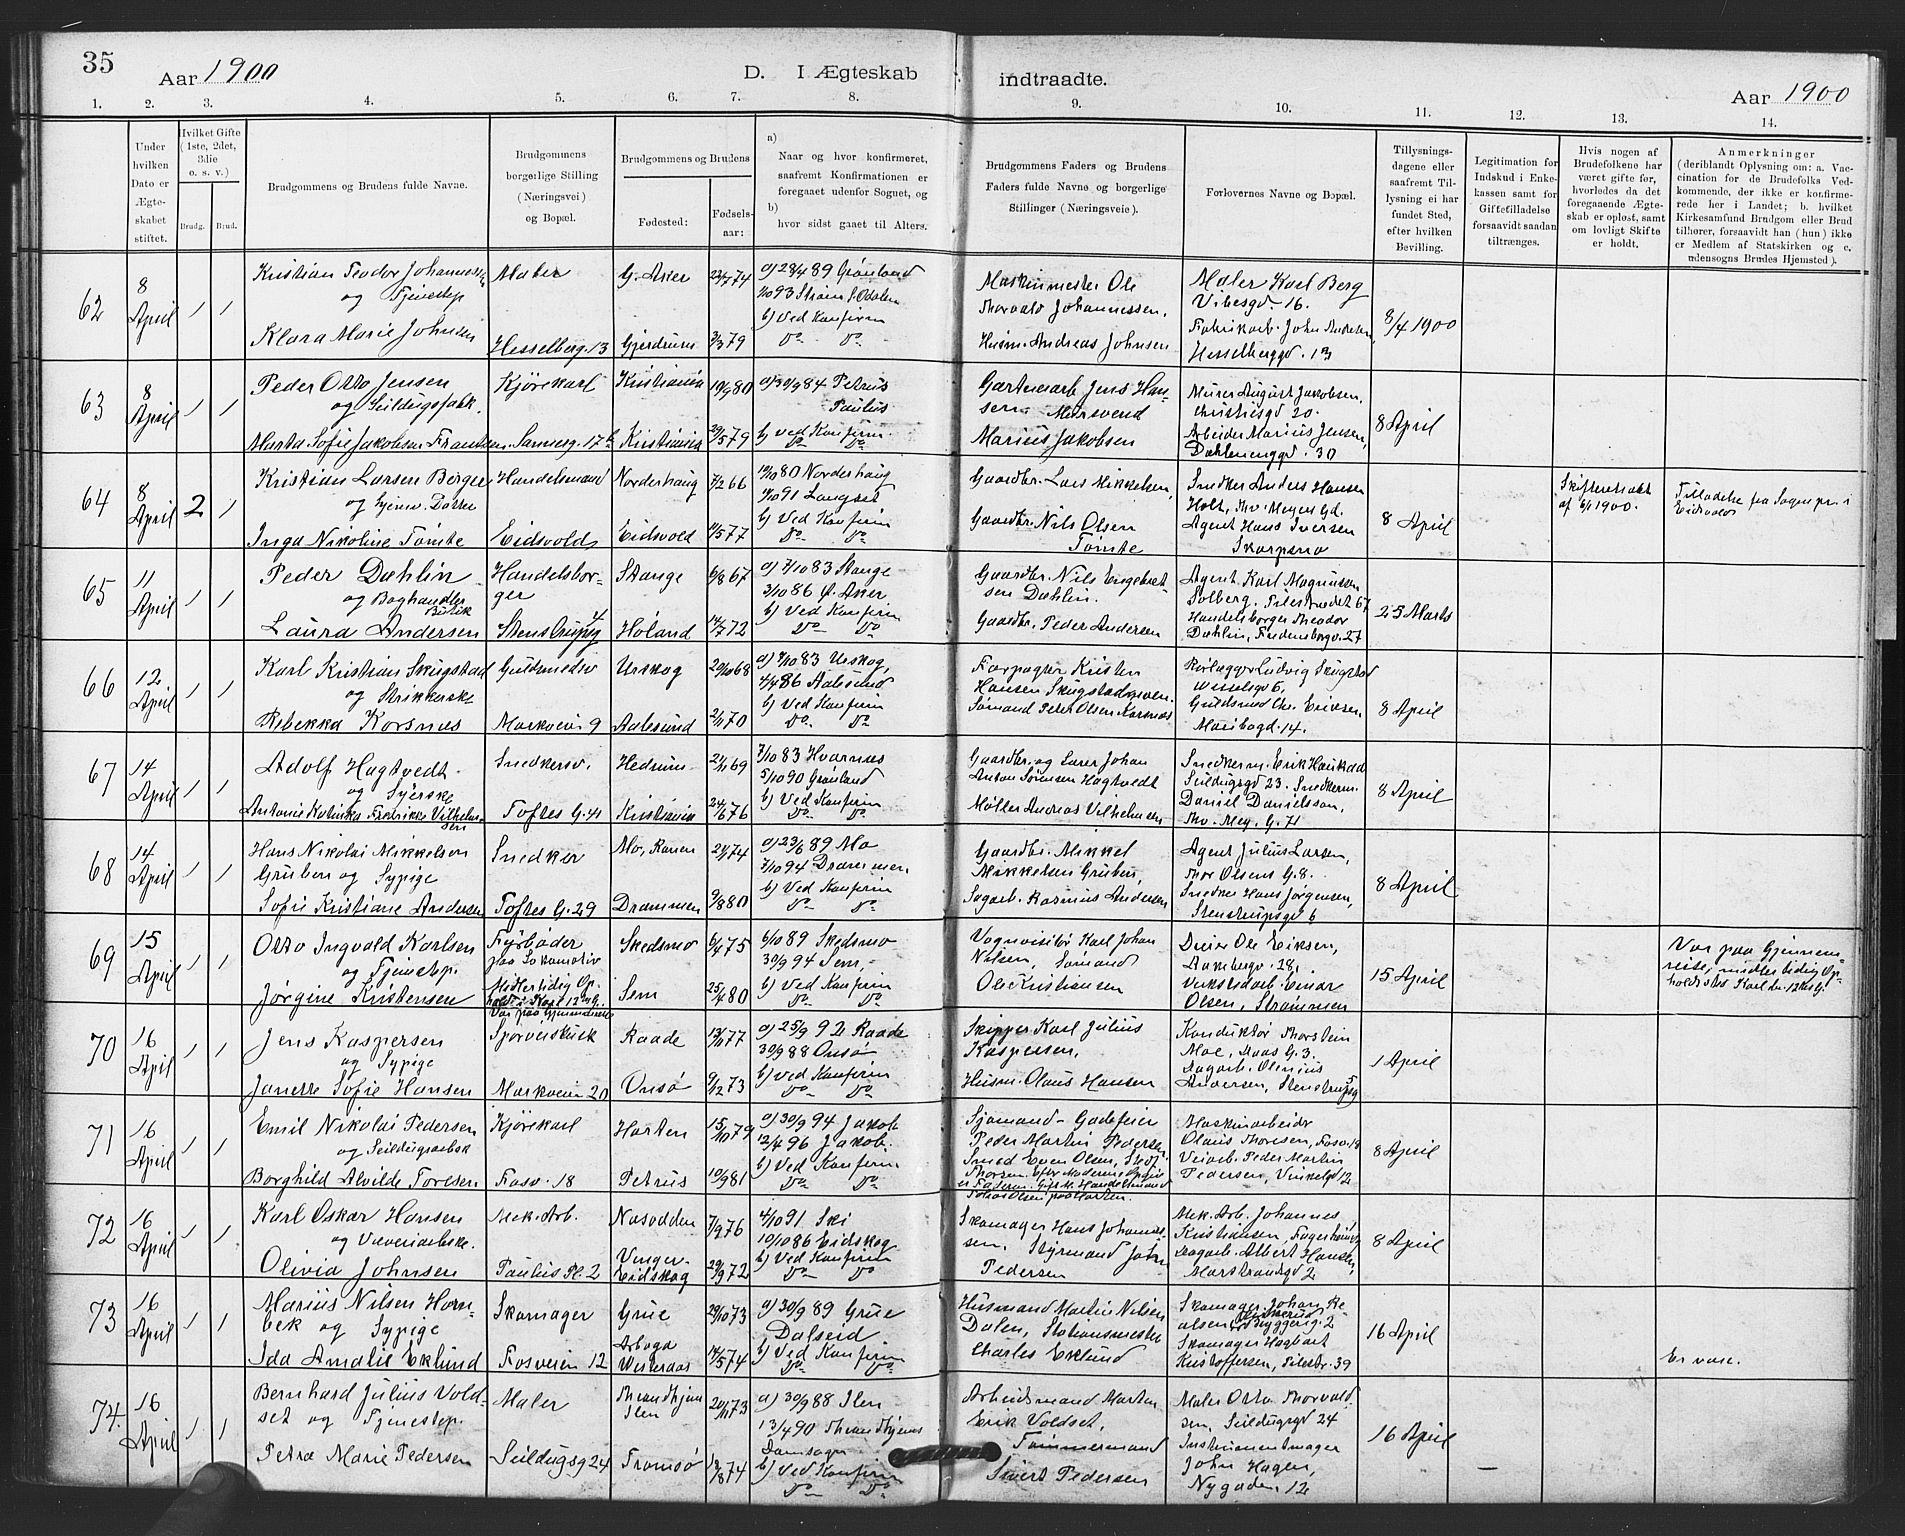 35
Aar 1900
D. I Ægteskab
indtraadte.
Aar 1900
1. 2. 3. 4. 5. 6. 7. 8. 9. 10. 11. 12. 13. 14.
Under hvilken Dato er Ægteskabet stiftet.
Hvilket Gifte (1ste, 2det, 3die o. s. v.)
Brudg. Brud.
Brudgommens og Brudens fulde Navne.
Brudgommens borgerlige Stilling (Næringsvei) og Bopæl.
Brudgommens og Brudens
Fødested:
Fødselsaar:
a) Naar og hvor konfirmeret, saafremt Konfirmationen er foregaaet udenfor Sognet, og
b) hvor sidst gaaet til Alters.
Brudgommens Faders og Brudens Faders fulde Navne og borgerlige Stillinger (Næringsveie).
Forlovernes Navne og Bopæl.
Tillysningsdagene eller saafremt Tillysning ei har fundet Sted, efter hvilken Bevilling.
Legitimation for Indskud i Enkekassen samt for Giftefilladelse forsaavidt saadan tiltrænges.
Hvis nogen af Brudefolkene har været gifte før, hvorledes da det foregaaende Ægteskab er opløst, samt om lovligt Skifte er holdt.
Anmerkninger (deriblandt Oplysning om: a. Vaccination for de Brudefolks Vedkommende, der ikke er konfirmerede her i Landet; b. hvilket Kirkesamfund Brudgom eller Brud tilhører, forsaavidt han (hun) ikke er Medlem af Statskirken og c. udensogns Brudes Hjemsted).
62
8 April
Kristian Teodor Johannessen
og Tjenestep
Klara Marie Johnsen
Maler
Hesselbergg. 13
G. Aker
Gjerdrum
22/7 74
3/3 79
a) 28/4 89 Grønland
1/10 93 Strøm S. Odalen
b) Ved Konfirm
Do Do
Maskinmester Ole
Thorvald Johannessen.
Husm. Andreas Johnsen
Maler Karl Berg
Vibesgd. 16.
Fabrikarb. John Andersen
Hesselberggd. 13
8/4 1900
63
8 April
Peder Otto Jensen
og Seildugsfabk.
Marta Sofie Jakobsen Frantzen
Kjørekarl
Sannerg. 17 b
Kristiania
Kristiania
19/9 80
29/5 79
a) 30/9 84 Petrus
Paulus
b) Ved Konfirm.
Do Do
Gartnerarb Jens Hansen
Marius Jakobsen
Murer August Jakobsen,
Christiesgd 20.
Arbeider Marius Jensen,
Dæhlenenggd. 30
8 April
64
8 April
2
Kristian Larsen Berger
og hjemv. Datter
Inga Nikoline Tømte
Handelsmand
Eidsvold
Norderhaug
Eidsvold
7/2 66
11/5 77
10/10 80 Norderhaug
1/10 91 Langset
b) Ved Konfirm
Do Do
Gaardbr. Lars Mikkelsen,
Gaardbr. Nils Olsen
Tømte
Snedker Anders Hansen
Holt, Thv. Meyers Gd.
Agent Hans Iversen
Skarpsno
8 April
Skifteretsakt
af 6/1 1900.
Tilladelse fra Sognepr. i
Eidsvold
65
11 April
Peder Dæhlin
og Boghandler
Butik
Laura Andersen
Handelsborger
Stenstrupg 4
Stange
Høland
6/8 67
14/7 72
a) 7/10 83 Stange
3/10 86 Ø. Aker
b) Ved Konfirm
Do Do
Gaardbr. Nils Engebretsen Dæhlin.
Gaardbr. Peder Andersen
Agent Karl Magnussen
Solberg, Pilestrædet 67
Handelsborger Theodor
Dæhlin, Fredensborgv. 27
25 Marts
66
12 April
Karl Kristian Skugstad
og Strikkerske
Rebekka Korsnæs
Guldsmedsv
Markveien 9
Urskog
Aalesund
20/10 68
2/11 70
a) 7/10 83 Urskog,
4/4 86 Aalesund
b) Ved Konfirm
Do Do
Forpagter Kristen
Hansen Skugstad
Sømand Peter Olsen Korsnæs
Rørlægger Ludvig Skugstad
Wesselsgd 6,
Guldsmed Chr. Eriksen,
Maribogd. 14.
8 April
67
14 April
Adolf Hagtvedt
og Syerske
Antonie Katinka Fredrikke Vilhelmsen
Snedkersv.
Toftes G. 41
Hedrum
Kristiania
21/11 69
24/6 76
7/10 83 Hvarnæs
5/10 90 Grønland
b) Ved Konfirm
Do Do
Gaardbr. og Lærer Johan
Anton Sørensen Hagtvedt
Møller Andreas Vilhelmsen
Snedkerm. Erik Haukaa
Seildugsgd 23. Snedkerm.
Daniel Danielsson,
Thv. Mey. G. 71
8 April
68
14 April
Hans Nikolai Mikkelsen
Gruben og Sypige
Sofie Kristiane Andersen
Snedker
Toftes G. 29
Mo, Ranen
Drammen
21/1 74
9/8 80
a) 23/6 89 Mo
7/10 94 Drammen
b) Ved Konfirm
Do Do
Gaardbr. Mikkel
Mikkelsen Gruben,
Sagarb. Rasmus Andersen
Agent Julius Larsen,
Thor Olsens G. 8.
Snedker Hans Jørgensen,
Stenstrupsgd 6
8 April
69
15 April
Otto Ingvald Karlsen
og Tjenestep.
Jørgine Kristensen
Fyrbøder
paa Lokomotiv
Midlertidig Op-
hold i Karl 12 G.
Var paa Gjennemreise
Skedsmo
Sem
6/4 75
25/4 80
6/10 89 Skedsmo
30/9 94 Sem,
b) Ved Konfirm
Do Do
Vognvisitør Karl Johan
Nilsen, Sømand
Ole Kristiansen
Ole Eriksen,
Aakebergv. 28,
Verkstedarb. Einar
Olsen, Strømmen
15 April
Var paa Gjennem-
reise, midlertidig Op-
holdssted Karl den 12tes G.
70
16 April
Jens Kaspersen
og Sypige
Janette Sofie Hansen
Sporveiskusk
Markveien 20
Raade
Onsø
13/11 77
9/12 73
a) 25/9 92 Raade
30/9 88 Onsø
b) Ved Konfirm
Do Do
Skipper Karl Julius
Kaspersen,
Husm. Olaus Hansen
Konduktør Thorstein
Moe, Maas G. 3.
Dagarb. Olenius
Andersen, Stenstrupsg 5
1 April
71
16 April
Emil Nikolai Pedersen
og Seildugsarbsk
Borghild Alvilde Toresen
Kjørekarl
Fosv. 18
Horten
Petrus
15/10 79
10/9 81
a) 30/9 94 Jakob
12/4 96 Jakob
b) Ved Konfirm
Do Do
Sjømand - Gadefeier
Peder Martin Pedersen
Smed Even Olsen,
Maskinarbeider
Olaus Thoresen, Fosv. 19
Veiarb. Peder Martin
Pedersen, Vinkelgd 12
8 April
72
16 April
Karl Oskar Hansen
og Væveriarbske.
Olivia Johnsen
Mek. Arb.
Paulus Pl. 2
Næsodden
Vinger
Eidskog
7/9 76
29/9 72
4/10 91 Ski
10/10 86 Eidskog
b) Ved Konfirm
Do Do
Skomager Hans Johannessen, Styrmand John
Pedersen
Mek. Arb. Johannes
Kristiansen, Fagerheimg
Dagarb. Albert Hansen,
Marstrandsgd 2
8 April
73
16 April
Marius Nilsen Hornbek og Sypige
Ida Amalie Eklund
Skomager
Fosveien 12
Grue
Arboga
Westeraas
29/10 73
14/5 74
a) 30/9 89 Grue
Dalseid
b) Ved Konfirm
Do Do
Husmand Martin Nilsen
Dalen, Stationsmester
Charles Eklund
Skomager Johan
Skomager Hagbart
Kristoffersen, Pilestr. 39
16 April
Er vacc.
74.
16 April
Bernhard Julius Voldset og Tjenestep.
Petra Marie Pedersen
Maler
Seildugsg 24
Throndhjem
Ilen
Tromsø
20/11 73
12/8 74
a) 30/9 88 Ilen
13/4 90 Throndhjems
Domsogn
b) Ved Konfirm
Do Do
Arbeidsmand Morten
Erik Voldset,
Tømmermand
Sivert Pedersen
Maler Otto Thorvaldsen, Seildugsgd 24
Instrumentmager
John Hagen,
Nygaden 12
16 April